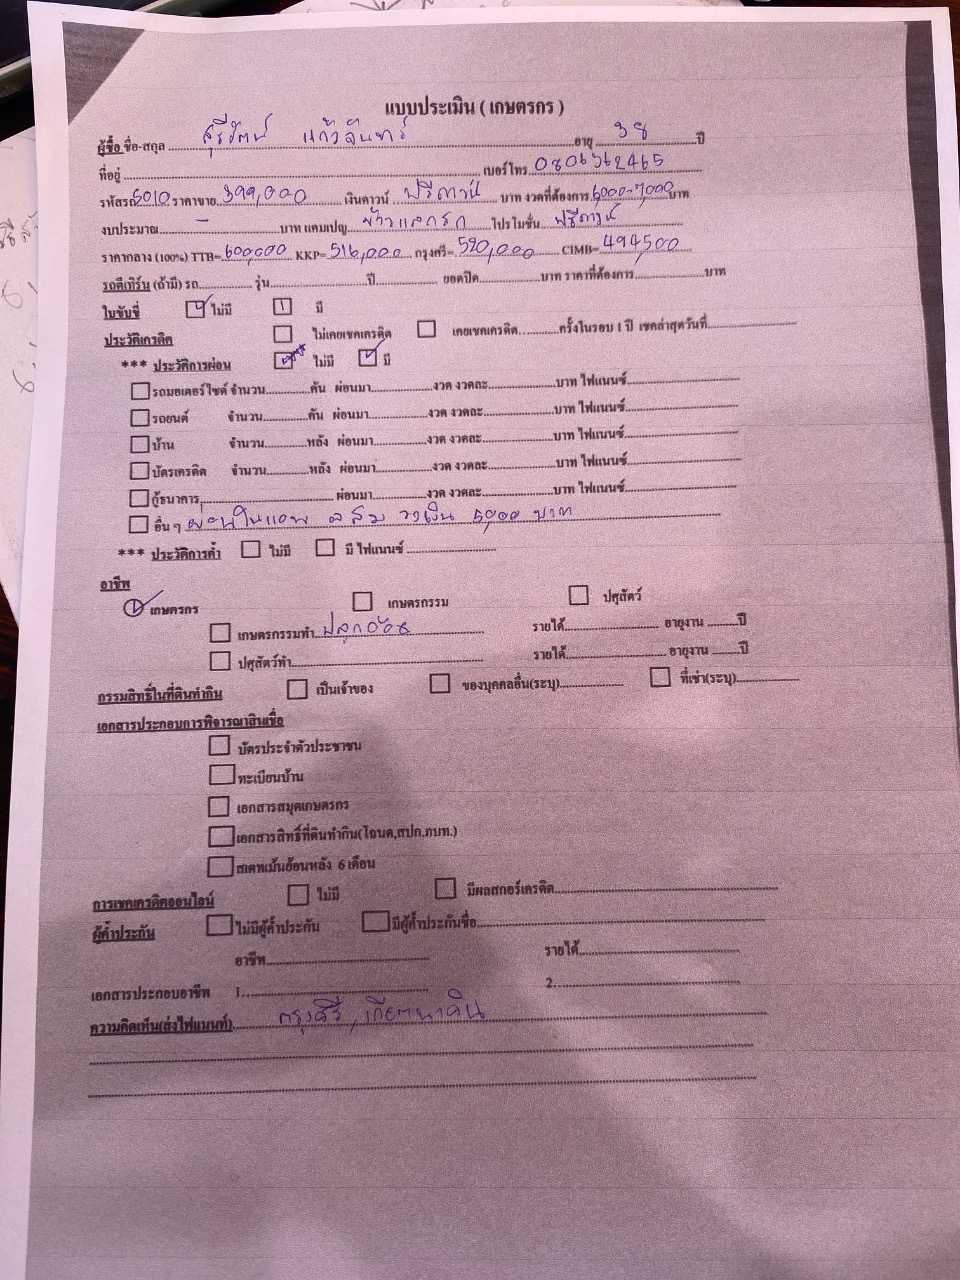 แบบประเมิน ( เกษตรกร )
ผู้ซื้อ ชื่อ-สกุล สุรีรัตน์ แก้วจันทร์ อายุ 38 ปี
ที่อยู่ เบอร์โทร 0806362465
รหัสรถ 5010 ราคาขาย 399,000 เงินดาวน์ ฟรีดาวน์ บาท งวดที่ต้องการ 6000-7000 บาท
งบประมาณ - บาท แคมเปญ ข้าวแลกรถ โปรโมชั่น ฟรีดาวน์
ราคากลาง (100%) TTB= 600,000 KKP= 516,000 กรุงศรี= 520,000 CIMB= 494,500
รถตีเทิร์น (ถ้ามี) รถ รุ่น ปี ยอดปิด บาท ราคาที่ต้องการ บาท
ใบขับขี่ ไม่มี มี
ประวัติเครดิต ไม่เคยเชคเครดิต เคยเชคเครดิต ครั้งในรอบ 1 ปี เชคล่าสุดวันที่
*** ประวัติการผ่อน ไม่มี มี
รถมอเตอร์ไซค์ จำนวน คัน ผ่อนมา งวด งวดละ บาท ไฟแนนซ์
รถยนต์ จำนวน คัน ผ่อนมา งวด งวดละ บาท ไฟแนนซ์
บ้าน จำนวน หลัง ผ่อนมา งวด งวดละ บาท ไฟแนนซ์
บัตรเครดิต จำนวน หลัง ผ่อนมา งวด งวดละ บาท ไฟแนนซ์
กู้ธนาคาร ผ่อนมา งวด งวดละ บาท ไฟแนนซ์
อื่น ๆ ผ่อนในแอพ วงเงิน 5,000 บาท
*** ประวัติการค้ำ ไม่มี มี ไฟแนนซ์
อาชีพ
เกษตรกร เกษตรกรรม ปศุสัตว์
เกษตรกรรมทำ ปลูกอ้อย รายได้ อายุงาน ปี
ปศุสัตว์ทำ รายได้ อายุงาน ปี
กรรมสิทธิ์ในที่ดินทำกิน เป็นเจ้าของ ของบุคคลอื่น(ระบุ) ที่เช่า(ระบุ)
เอกสารประกอบการพิจารณาสินเชื่อ
บัตรประจำตัวประชาชน
ทะเบียนบ้าน
เอกสารสมุดเกษตรกร
เอกสารสิทธิ์ที่ดินทำกิน(โฉนด,สปก.ภบท.)
สเตทเม้นย้อนหลัง 6 เดือน
การเชคเครดิตออนไลน์ ไม่มี มีผลสกอร์เครดิต
ผู้ค้ำประกัน ไม่มีผู้ค้ำประกัน มีผู้ค้ำประกันชื่อ
อาชีพ รายได้
เอกสารประกอบอาชีพ 1. 2.
ความคิดเห็น(ส่งไฟแนนท์) กรุงศรี, เกียรตินาคิน